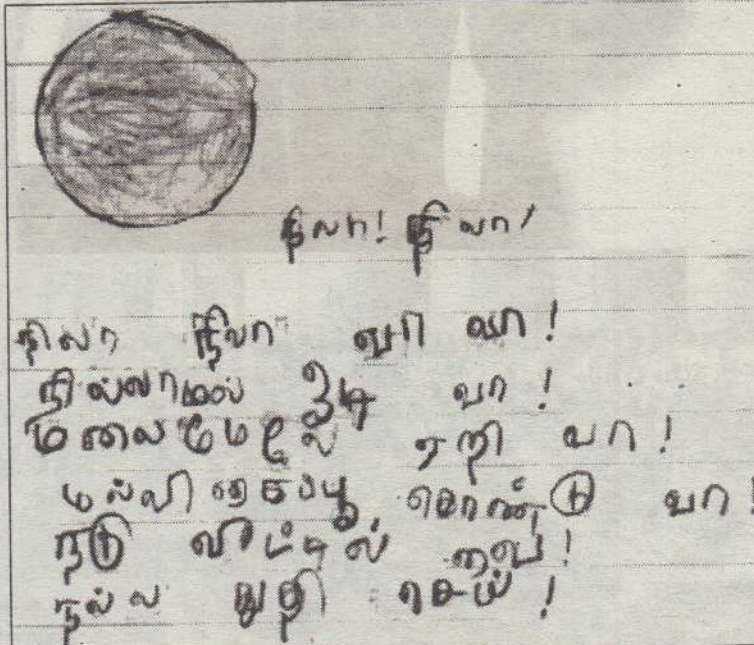 நிலா! நிலா!
நிலா நிலா வா வா!
நில்லாமல் ஓடி வா!
மலைமேலே ஏறி வா!
மல்லிகைப்பூ கொண்டு வா!
நடு வீட்டில் வை!
நல்ல துதி செய்!